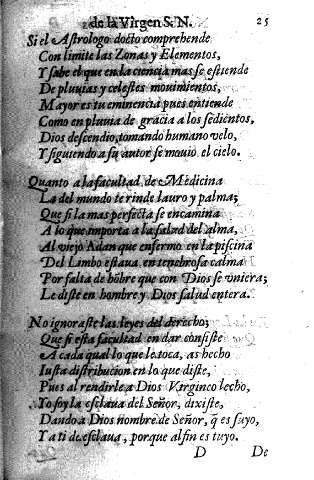 de la Virgen S. N. 25
Si el Astrologo docto comprehende
Con limite las Zonas y Elementos,
Y sabe el que en la ciencia mas se estiende
De pluuias y celestes mouimientos,
Mayor es tu eminencia pues entiende
Como en pluuia de gracia a los sedientos,
Dios descendio, tomando humano velo,
Y siguiendo a su autor se mouio el cielo.
Quanto a la facultad de Medicina
La del mundo te rinde lauro y palma;
Que si la mas perfecta se encamina
A lo que importa a la salud del alma,
Al viejo Adan que enfermo en la piscina
Del Limbo estaua en tenebrosa calma
Por falta de hõbre que con Dios se vniera;
Le diste en hombre y Dios salud entera.
No ignoraste las leyes del derecho;
Que si esta facultad en dar consiste
A cada qual lo que le toca, as hecho
Iusta distribucion en lo que diste,
Pues al rendirle a Dios Virgineo lecho,
Yo soy la esclaua del Señor, dixiste,
Dando a Dios nombre de Señor, q̃ es suyo,
Y a ti de esclaua, porque al fin es tuyo.
D De